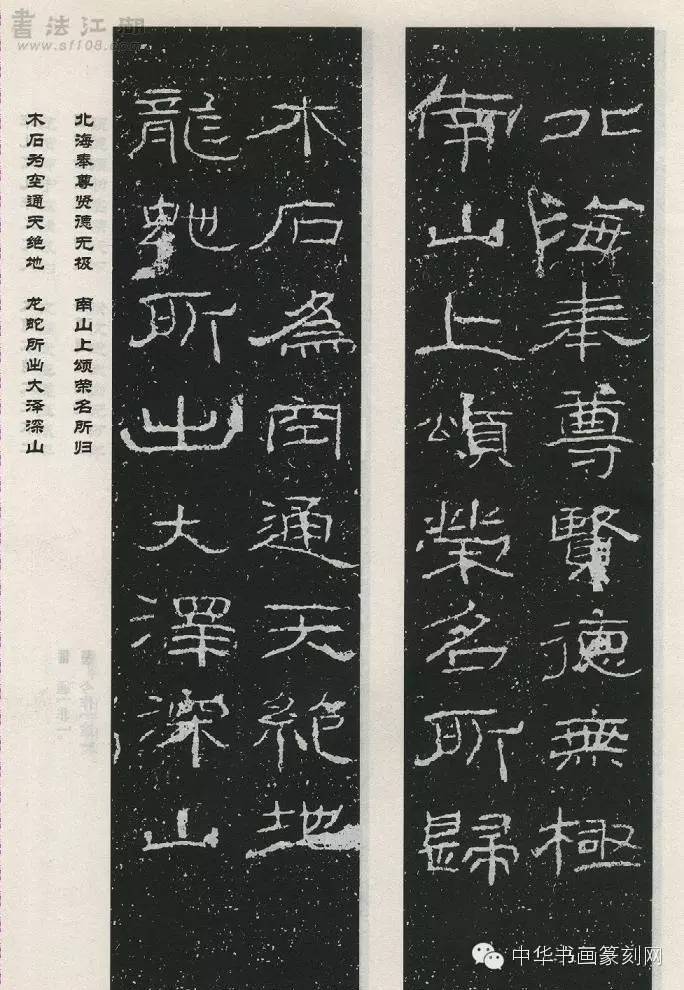 書法江湖
www.sf108.com
北海奉尊賢德無極
南山上頌榮名所歸
木石為空通天絶地
龍虵所出大澤深山
北海奉尊贤德无极 南山上颂荣名所归
木石为空通天绝地 龙蛇所出大泽深山
中华书画篆刻网